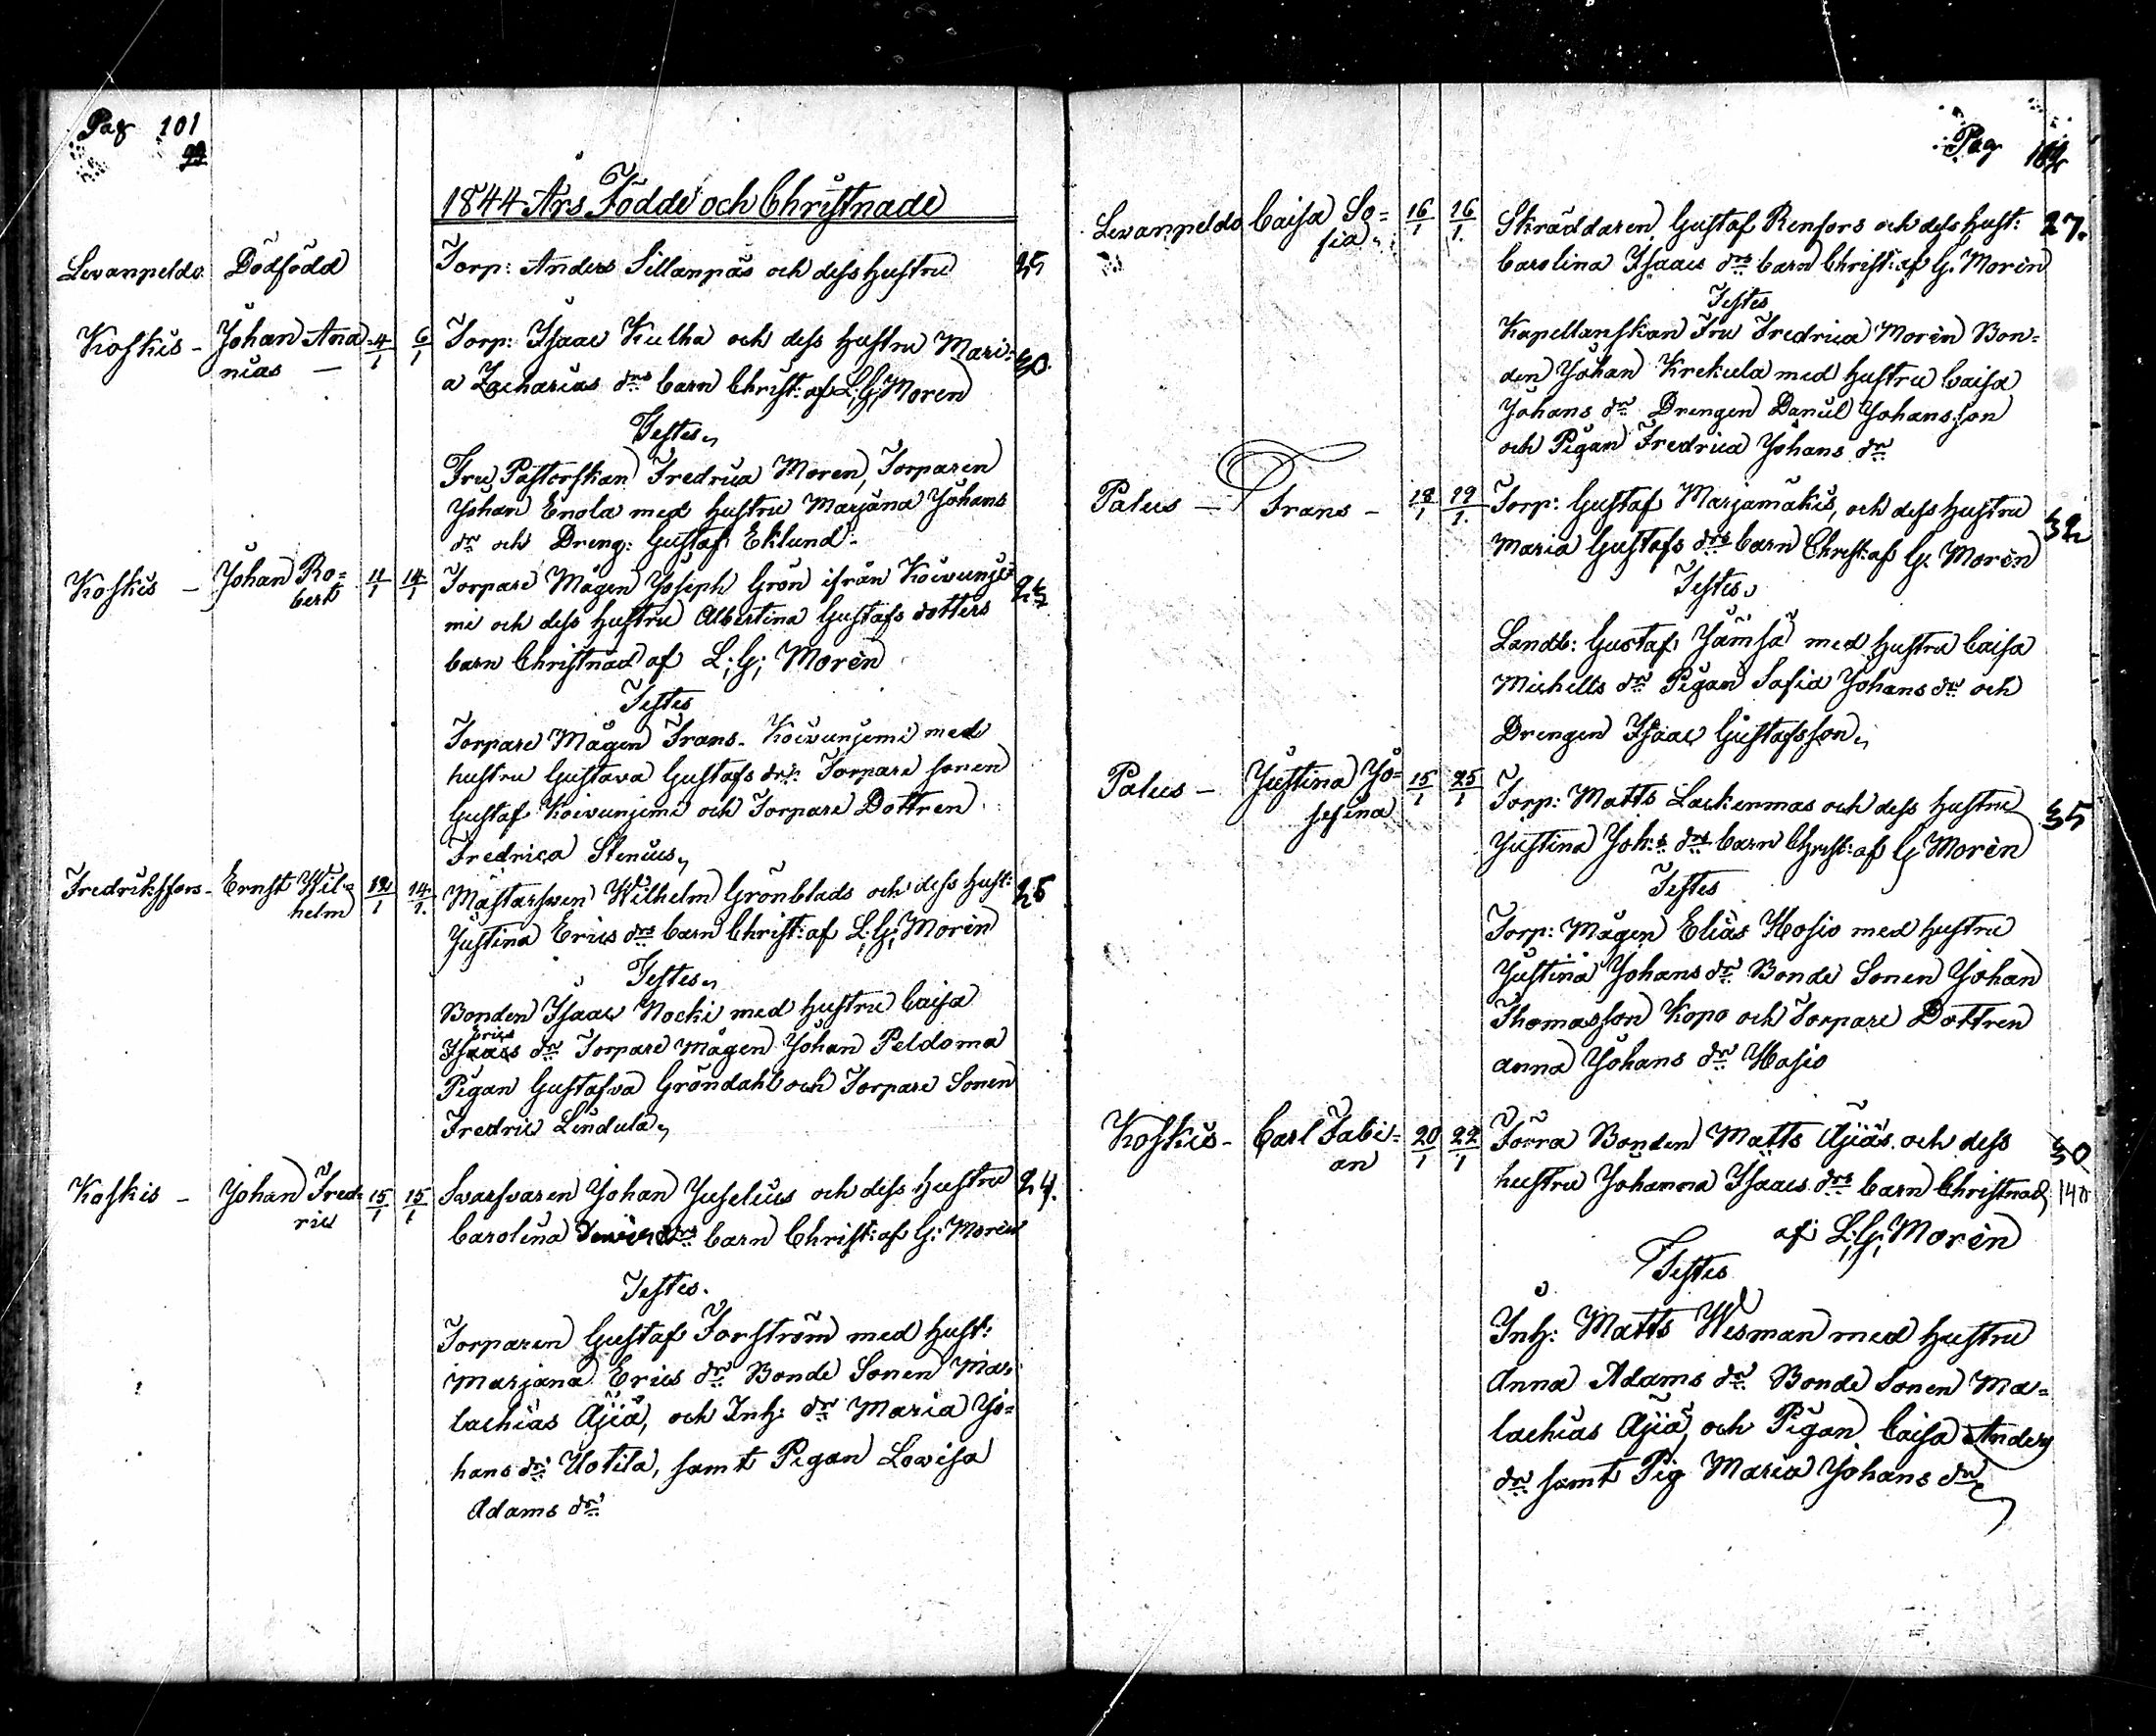 Pag 101
99
1844 Års Födde och Christnade
Levanpeldo Dödfödd Torp: Anders Sillanpäs och dess Hustru 35
Koskis - Johan Ana- 4/1 6/1 Torp: Isaac Kulha och dess Hustru Mari- 30.
nias — a Zacharias drs barn Christ: af L; G; Moren
Testes,
Fru Pastorskan Fredrica Moren, Torparen
Johan Enola med Hustru Marjana Johans
dr och Dreng: Gustaf Eklund.
Koskis - Johan Ro= 11/1 14/1 Torpare Mågen Joseph Grön ifrån Koivunje
bert mi och dess Hustru Albertina Gustafs dotters
barn Christnad af L; G; Morèn
Testes
Torpare Mågen Frans Koivunjemi med
hustru Gustava Gustafs dr: Torpare sonen
Gustaf Koivunjemi och Torpare Dottren
Fredrica Stenius,
Fredriksfors - Ernst Wil= 12/1 14/1. Mästarsven Wilhelm Grönblads och dess Hust: 25
helm Justina Erics drs barn Christ: af L; G; Morèn
Testes,
Bonden Isaac Nocki med hustru Caisa
Erics
Isaacs dr Torpare Mågen Johan Peldoma
Pigan Gustafva Gröndahl och Torpare Sonen
Fredric Lindula,
Koskis - Johan Fred= 15/1 15/1 Svarfvaren Johan Juselius och dess Hustru 24.
ric Carolina drs barn Christ: af G: Morèn
Testes.
Torparen Gustaf Forström med Hust:
Marjana Erics dr Bonde Sonen Ma=
lachias Äjiä, och Inh: dr Maria Jo=
hans dr Uotila, samt Pigan Lovisa
Adams dr
Pag 102
Levanpeldo Caisa So= 16/1 16/1. Skräddaren Gustaf Renfors och dess Hust: 27.
fia, Carolina Isaacs drs barn Christ: af G. Morèn
Testes
Kapellanskan Fru Fredrica Morèn Bon=
den Johan Krekula med hustru Caisa
Johans dr Drengen Daniel Johansson
och Pigan Fredrica Johans dr
Palus — Frans - 18/1 19/1. Torp: Gustaf Marjamäkis, och dess Hustru 32
Maria Gustafs drs barn Christ: af G. Morèn
Testes,
Landb: Gustaf Jämsä med Hustru Caisa
Michells dr Pigan Sofia Johans dr och
Drengen Isaac Gustafsson,
Palus - Justina Jo= 15/1 25/1 Torp: Matts Lackermas och dess Hustru 35
sefina Justina Joh:s drs barn Christ: af G Morèn
Testes
Torp: Mågen Elias Hosio med hustru
Justina Johans dr Bonde Sonen Johan
Thomasson Kopo och Torpare Dottren
Anna Johans dr Hosio
Koskis - Carl Fabi= 20/1 22/1 Förra Bonden Matts Äjiäs och dess 30
an hustru Johanna Isaacs drs barn Christnad 140
af L; G; Morèn
Testes
Inh: Matts Wesman med Hustru
Anna Adams dr Bonde Sonen Ma=
lachias Äjiä, och Pigan Caisa Anders
dr samt Pig Maria Johans dr